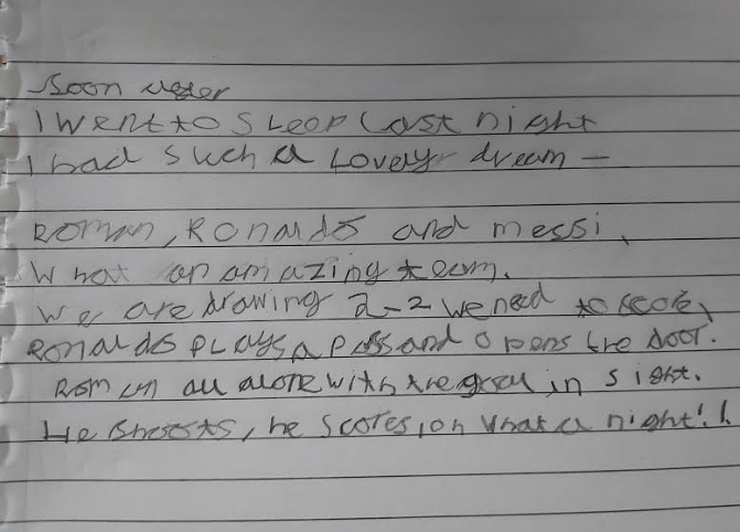 Soon after
I went to sleep last night
I had such a lovely dream –
Roman, Ronaldo and messi,
What an amazing team.
We are drawing 2-2 we need to score,
Ronaldo plays a pass and opens the door.
Roman all alone with the goal in sight.
He shoots, he scores, oh what a night!!